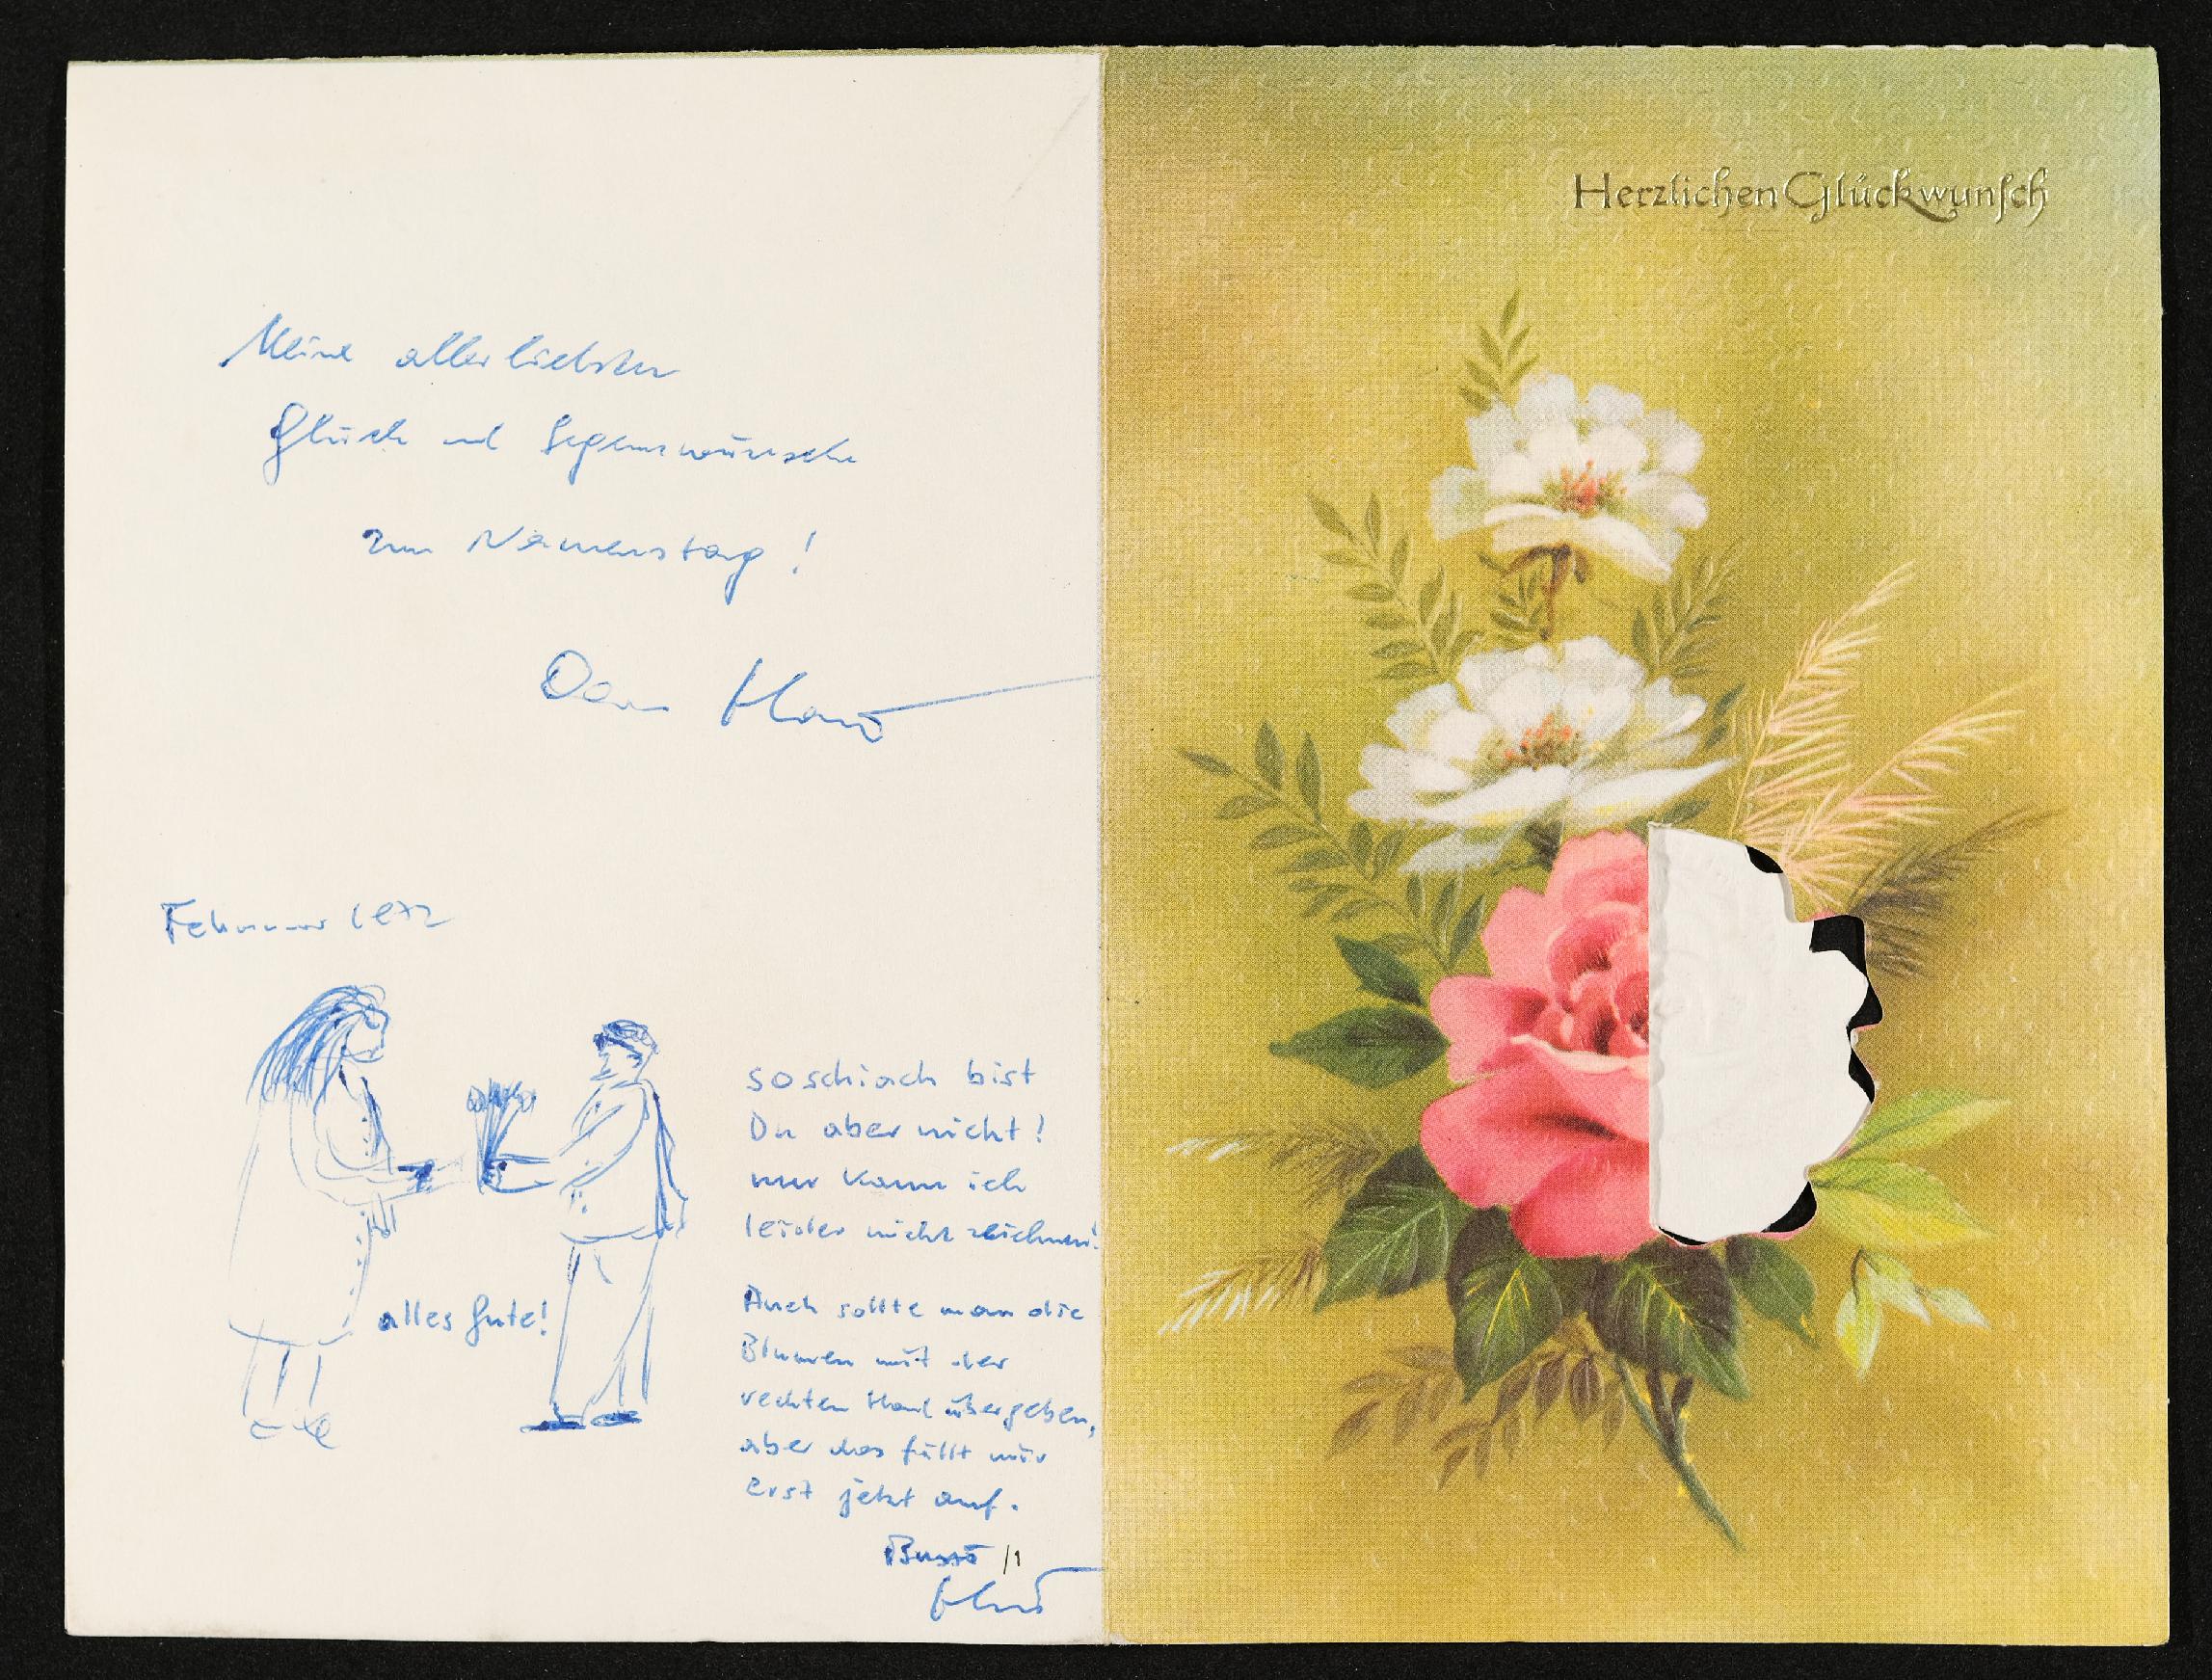 Meine allerliebsten
Glück und Segenswünsche
zum Namenstag!
Dein Hans
Februar 1972
alles Gute!
so schiach bist
Du aber nicht!
nur kann ich
leider nicht zeichnen!
Auch sollte man die
Blumen mit der
rechten Hand übergeben,
aber das fällt mir
erst jetzt auf.
Bussi /1
Hans
Herzlichen Glückwunsch